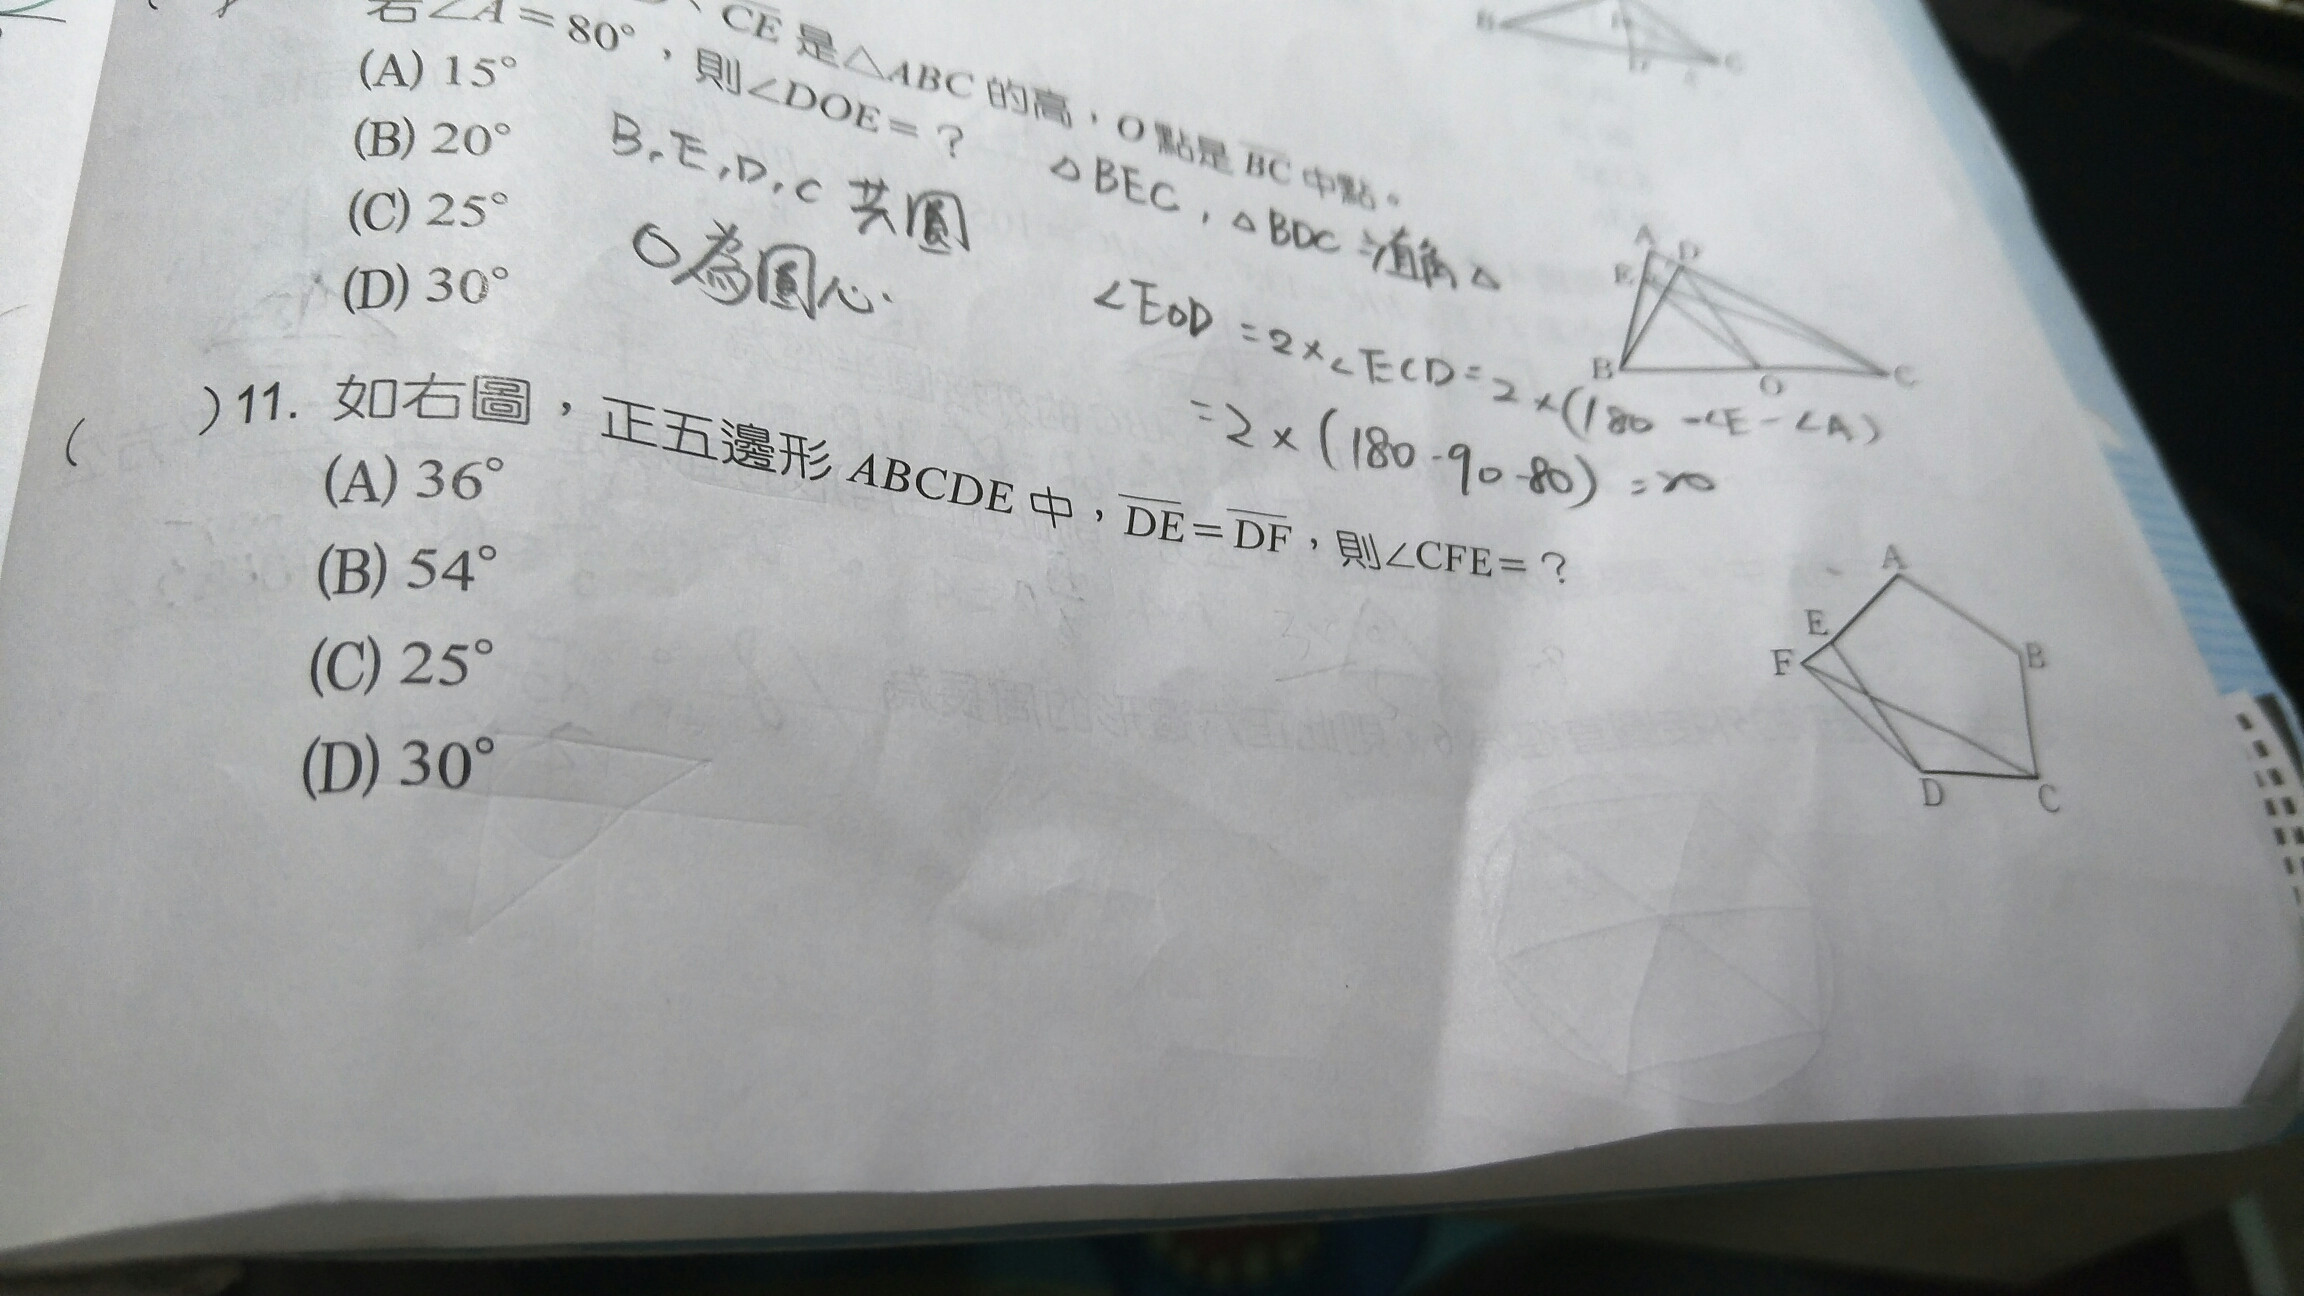 若∠A=80°，則∠DOE=？
CE 是△ABC 的高，O 點是 BC 中點。
(A) 15°
(B) 20°
(C) 25°
(D) 30°
B,E,D,C 共圓
O為圓心.
△BEC, △BDC 為直角△
∠EOD = 2×∠ECD = 2×(180-∠E-∠A)
=2×(180-90-80)=20
A
D
E
B
O
C
( )11. 如右圖，正五邊形 ABCDE 中，DE=DF，則∠CFE=？
(A) 36°
(B) 54°
(C) 25°
(D) 30°
A
E
F
B
D
C